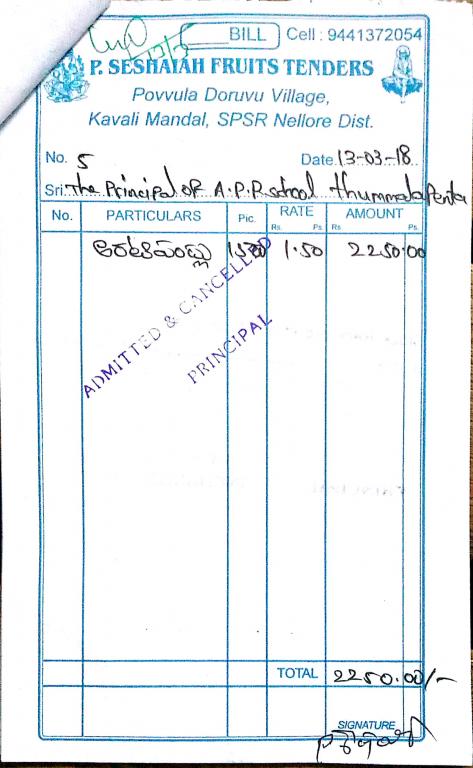 BILL Cell : 9441372054
P. SESHAIAH FRUITS TENDERS
Povvula Doruvu Village,
Kavali Mandal, SPSR Nellore Dist.
No. 5 Date 13-03-18
Sri. The Principal of A.P.R school Thummalapenta
No. PARTICULARS Pic. RATE AMOUNT
Rs. Ps. Rs Ps.
అరటిపండ్లు 1500 1.50 2250.00
ADMITTED & CANCELLED
PRINCIPAL
TOTAL 2250.00/-
SIGNATURE